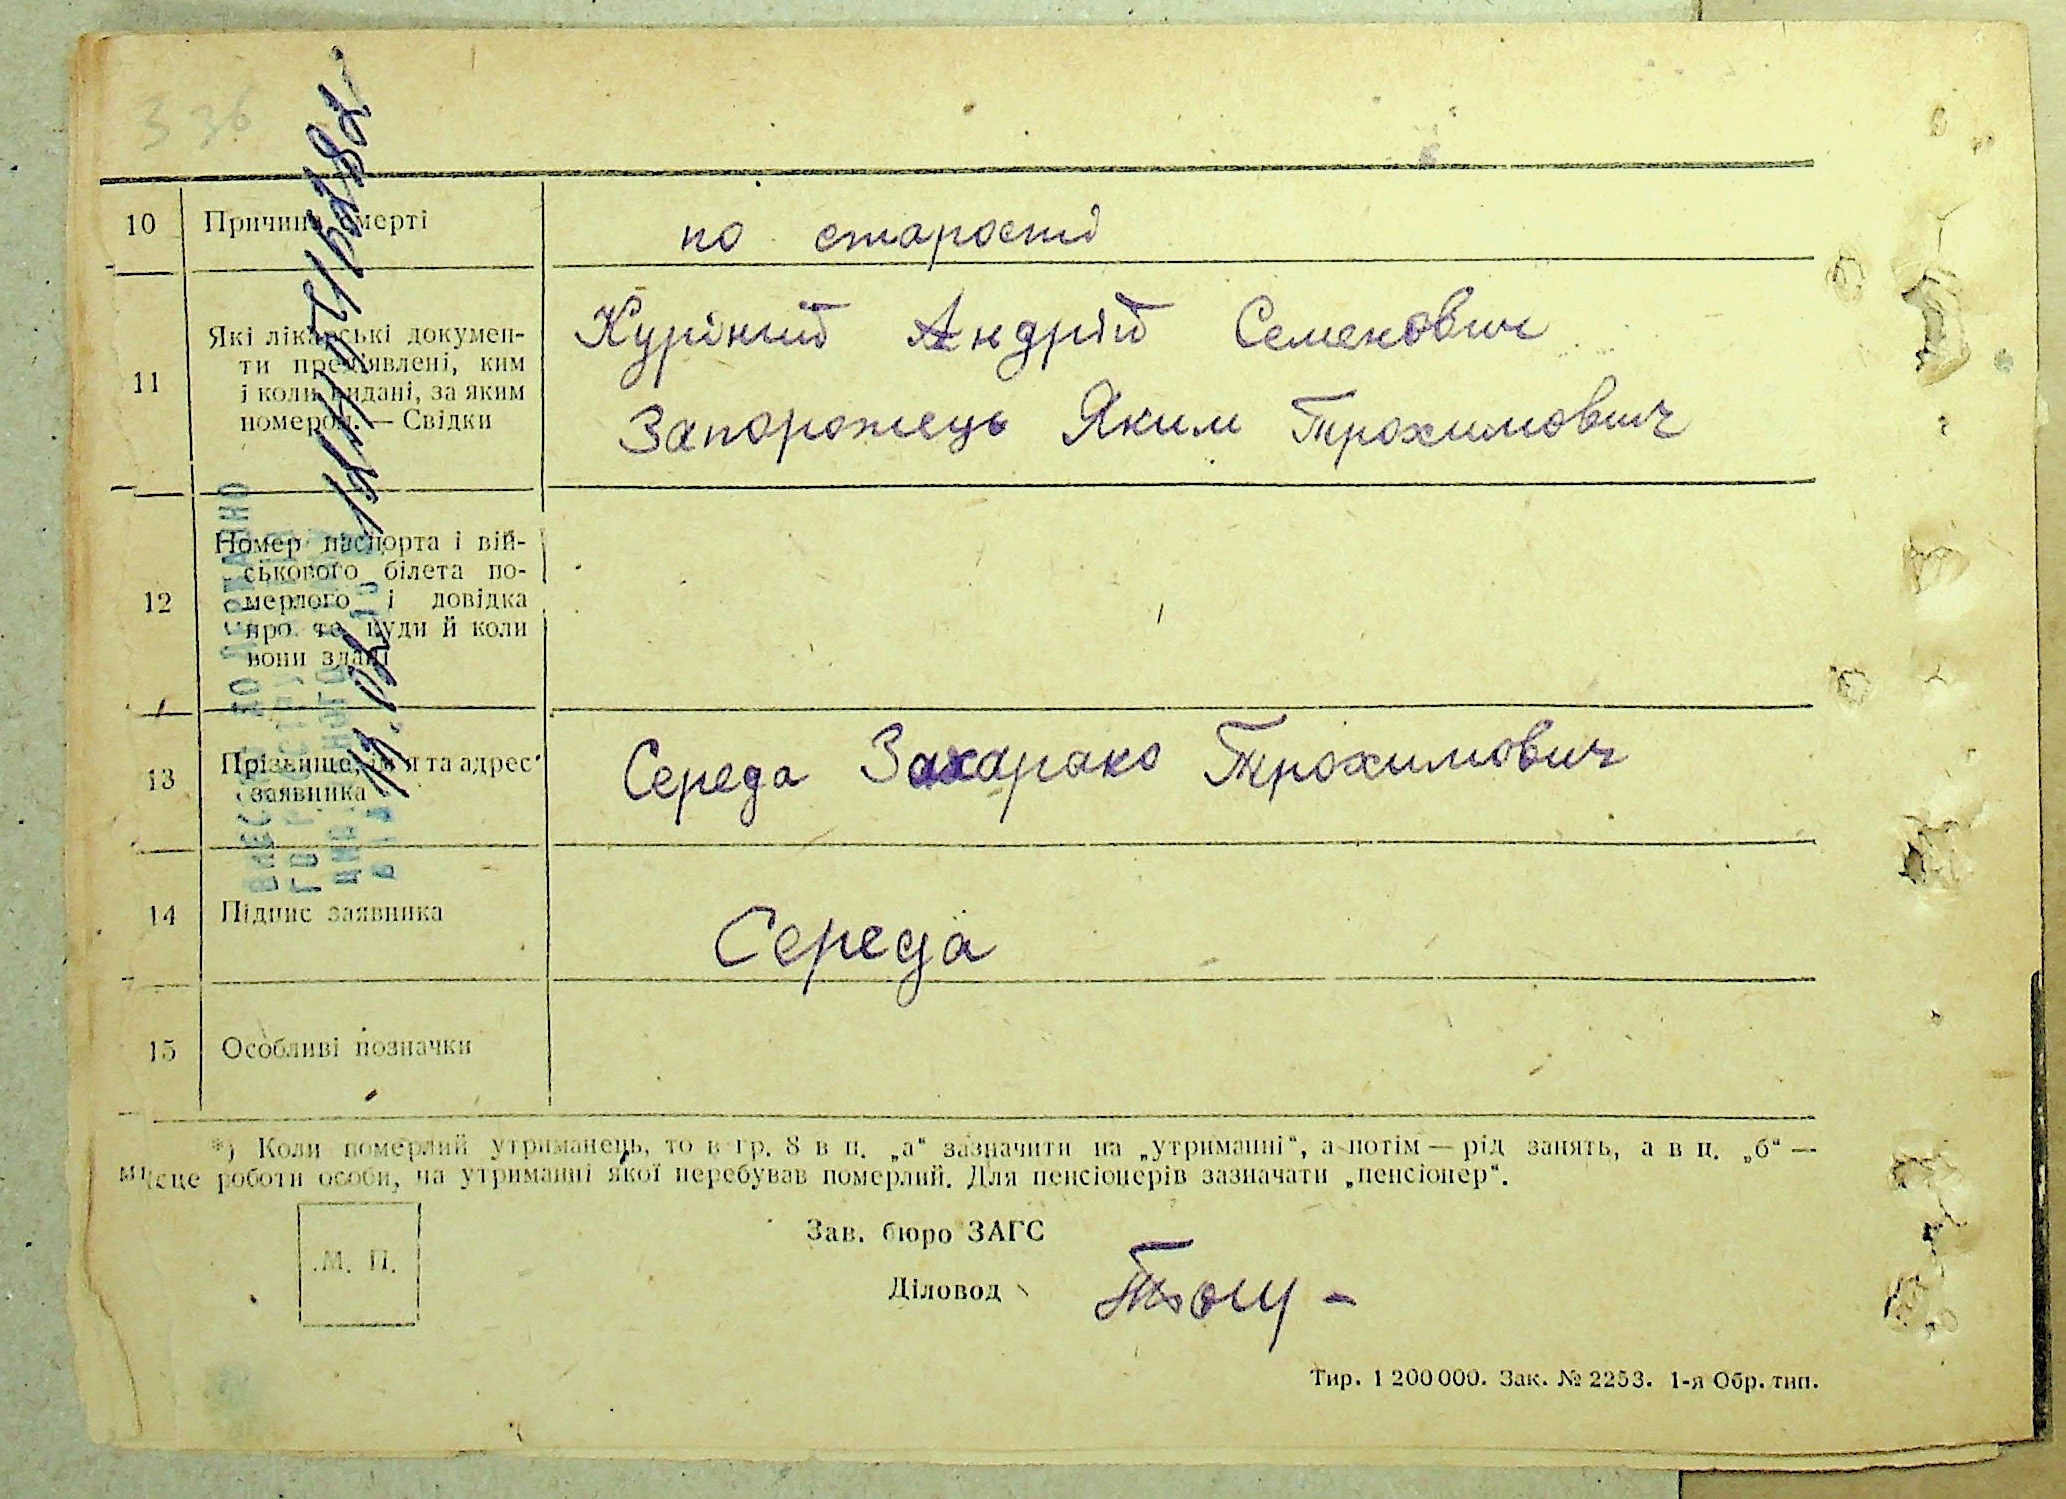 336
10 Причина смерті по старості
11 Які лікарські докумен-
ти пред'явлені, ким
і коли видані, за яким
номером. — Свідки
Куріний Андрій Семенович
Запорожець Яким Трохимович
12 Номер паспорта і вій-
ськового білета по-
мерлого і довідка
про те, куди й коли
вони здані
13 Прізвище, ім'я та адрес
заявника
Середа Захарако Трохимович
14 Підпис заявника Середа
15 Особливі позначки
*) Коли померлий утриманець, то в гр. 8 в п. „а“ зазначити на „утриманні“, а потім — рід занять, а в п. „б“ —
місце роботи особи, на утриманні якої перебував померлий. Для пенсіонерів зазначати „пенсіонер“.
М. П.
Зав. бюро ЗАГС
Діловод
Тир. 1 200 000. Зак. № 2253. 1-я Обр. тип.